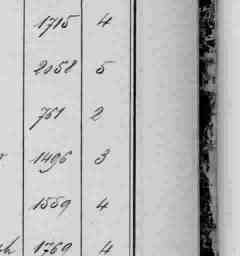 1715 4
2058 5
761 2
1496 3
1559 4
1769 4